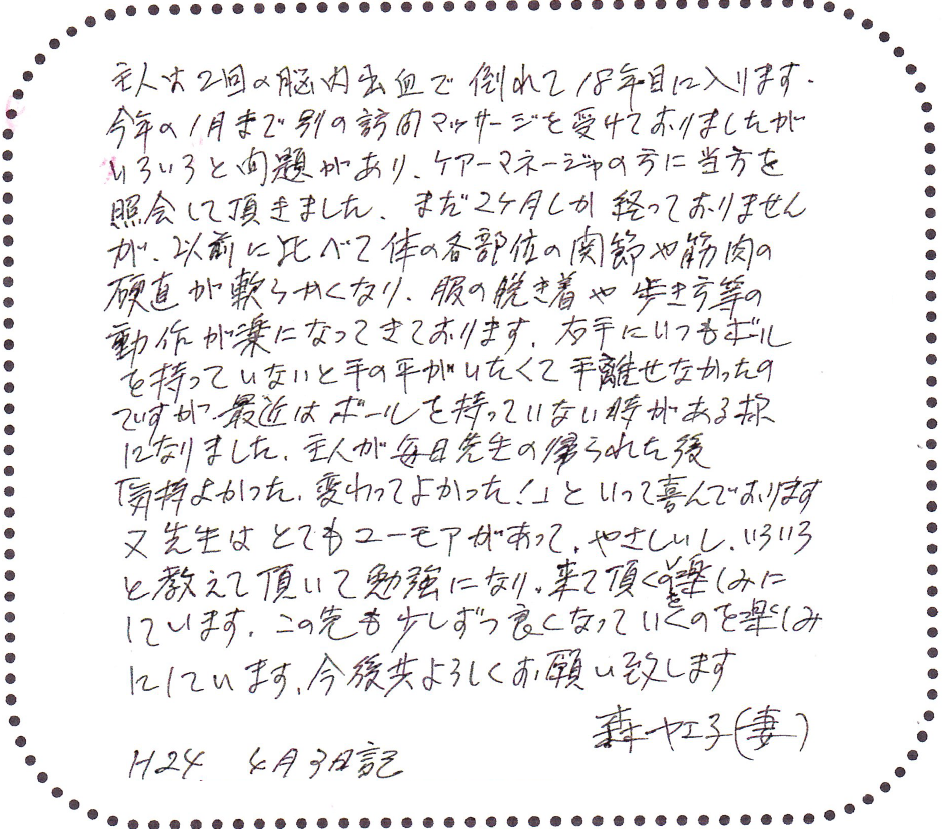 主人は2回の脳内出血で倒れて18年目に入ります.
今年の1月まで別の訪問マッサージを受けておりましたが
いろいろと問題があり、ケアーマネージャの方に当方を
照会して頂きました、まだ2ヶ月しか経っておりません
が、以前に比べて体の各部位の関節や筋肉の
硬直が軟らかくなり、服の脱き着や歩き方等の
動作が楽になってきております、右手にいつもボール
を持っていないと手の平がいたくて手離せなかったの
ですが、最近はボールを持っていない時がある様
になりました、主人が毎日先生の帰られた後
「気持よかった、変わってよかった!」といって喜んでおります
又先生はとてもユーモアがあって、やさしいし、いろいろ
と教えて頂いて勉強になり、来て頂くのを楽しみに
しています、この先も少しずつ良くなっていくのを楽しみ
にしています、今後共よろしくお願い致します
森ヤエ子(妻)
H24 4月3日記